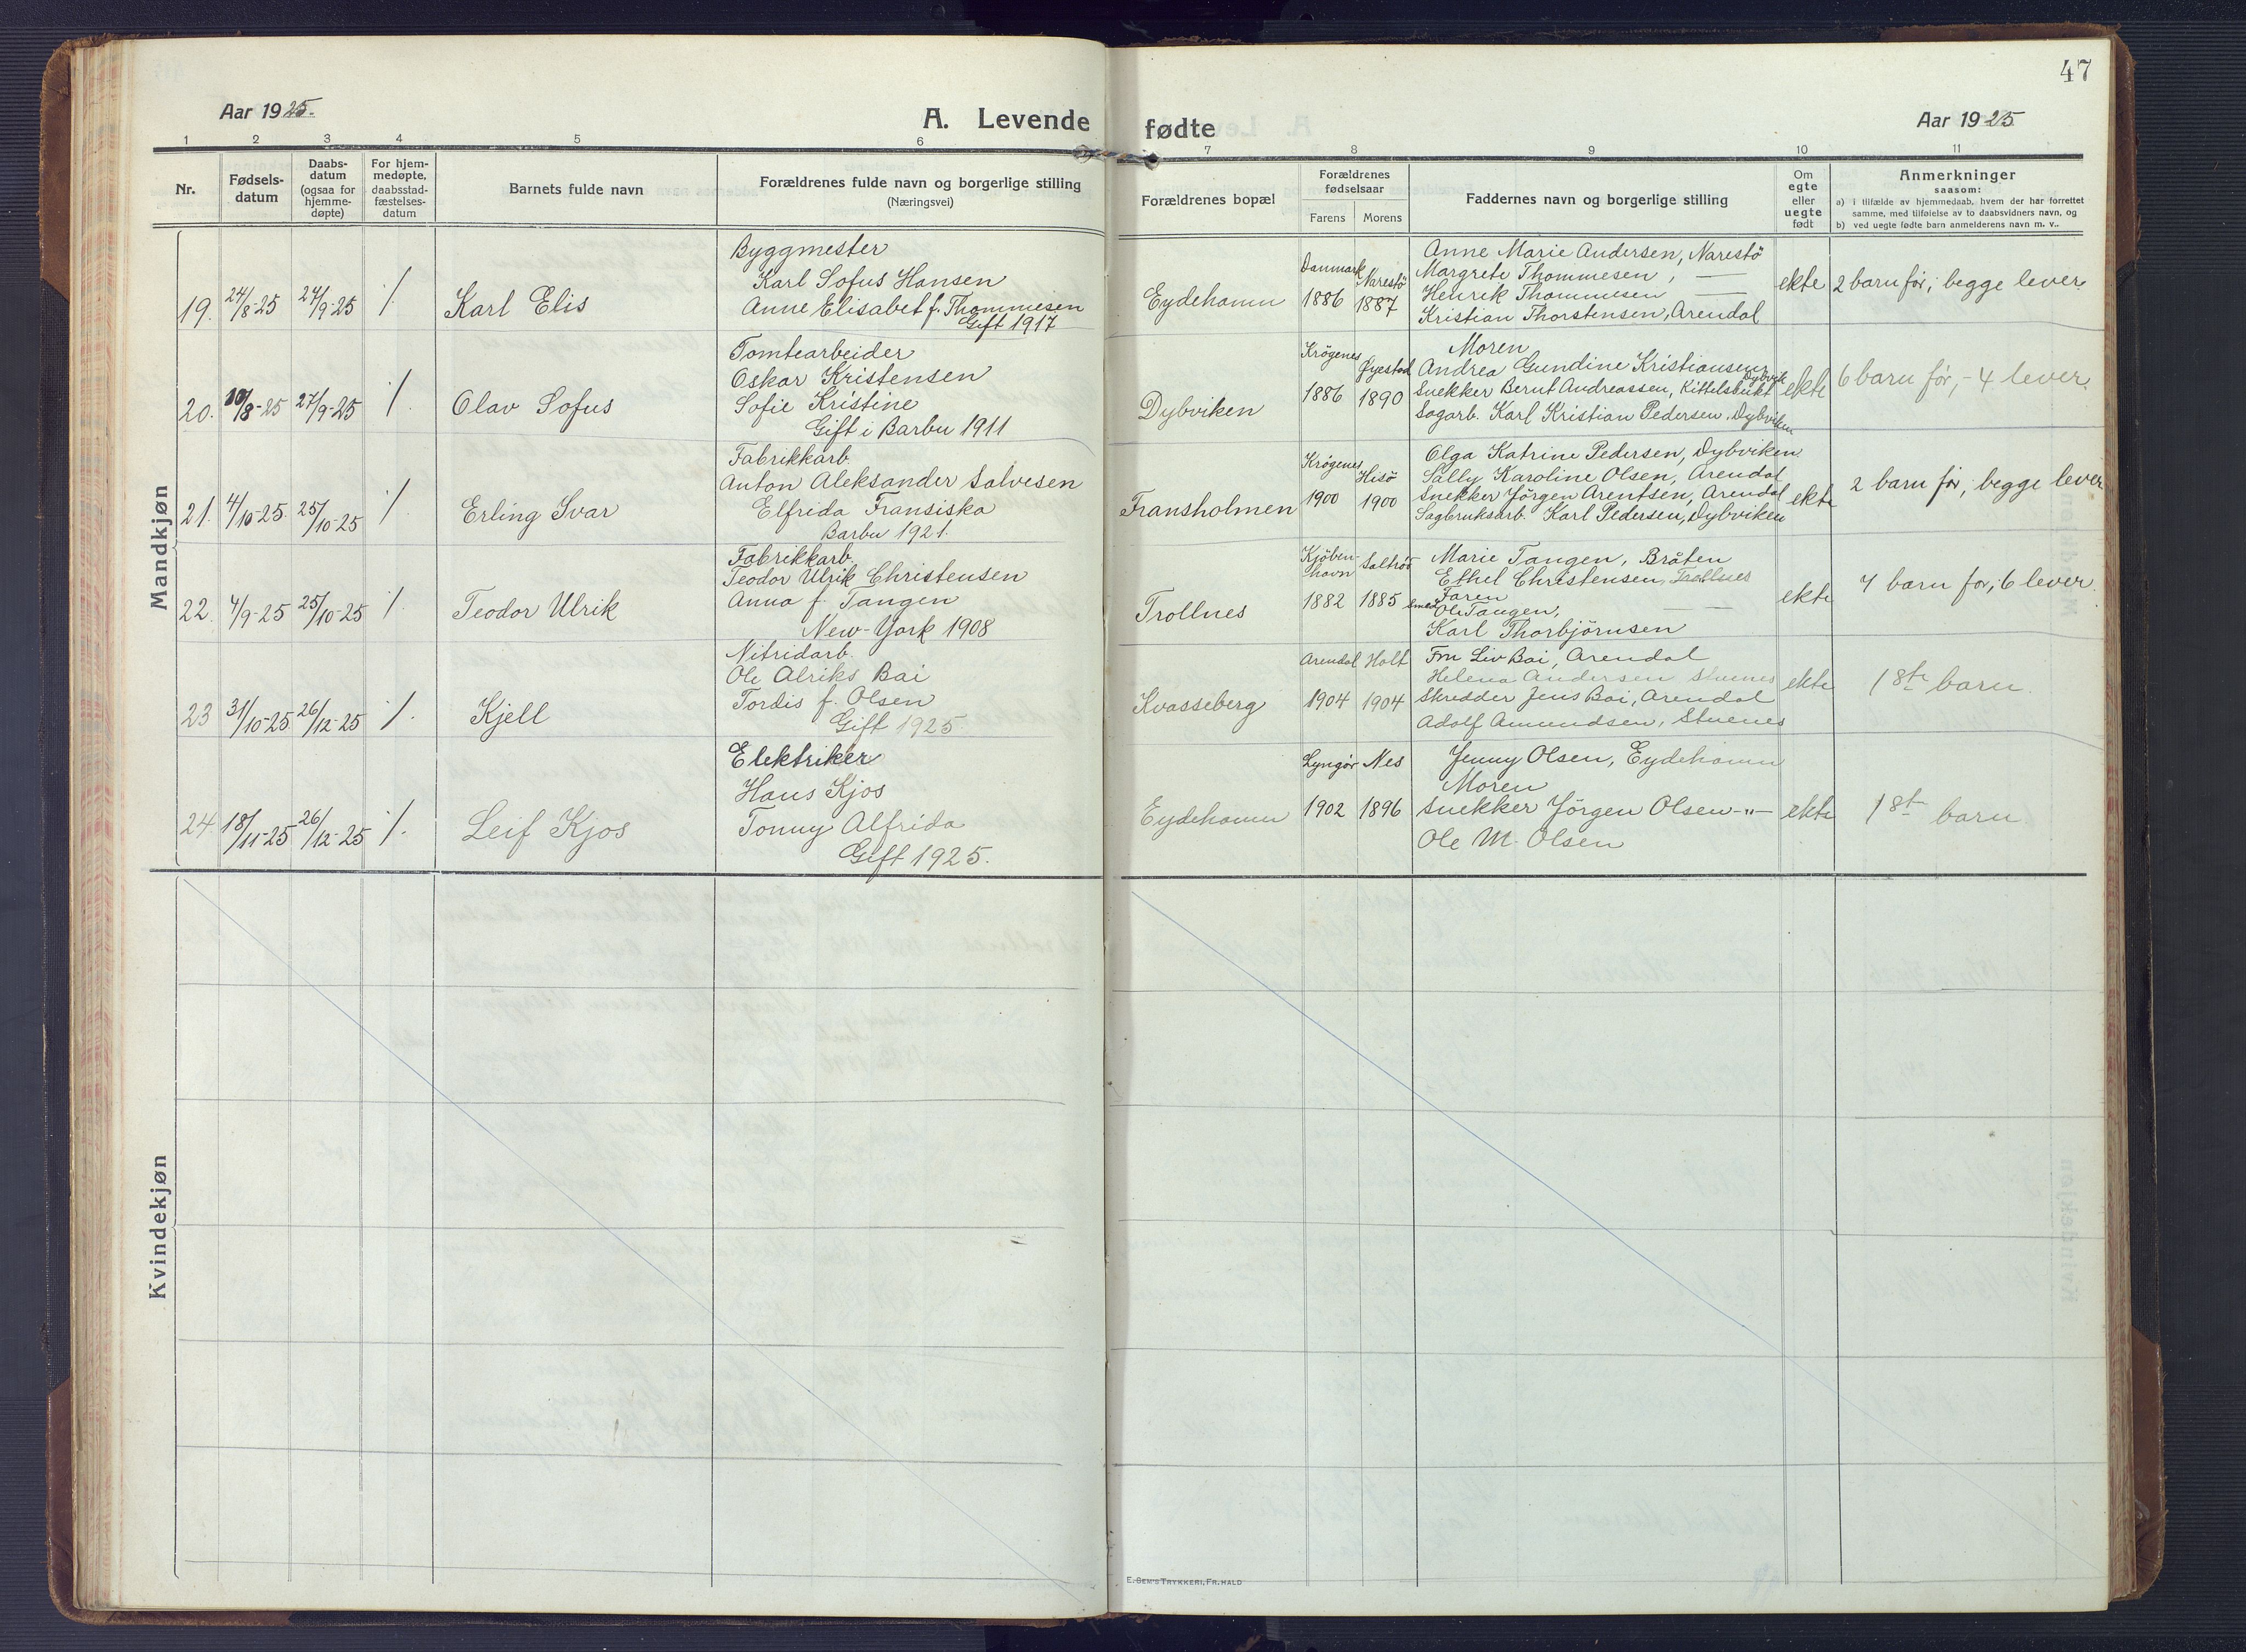 47
Aar 1925.
A. Levende fødte
Aar 1925
1 2 3 4 5 6 7 8 9 10 11
Nr.
Fødsels-
datum
Daabs-
datum
(ogsaa for
hjemme-
døpte)
For hjem-
medøpte,
daabsstad-
fæstelses-
datum
Barnets fulde navn
Forældrenes fulde navn og borgerlige stilling
(Næringsvei)
Forældrenes bopæl
Forældrenes
fødselsaar
Farens Morens
Faddernes navn og borgerlige stilling
Om
egte
eller
uegte
født
Anmerkninger
saasom:
a) i tilfælde av hjemmedaab, hvem der har forrettet
samme, med tilføielse av to daabsvidners navn, og
b) ved uegte fødte barn anmelderens navn m. v..
Mandkjøn
19. 24/8-25 27/9-25 ./.
Karl Elis
Byggmester
Karl Sofus Hansen
Anne Elisabet f. Thommesen
Gift 1917
Eydehamn
Danmark
1886
Narestö
1887
Anne Marie Andersen, Narestö
Margrete Thommesen, —
Henrik Thommesen —
Kristian Thorstensen, Arendal
ekte
2 barn før; begge lever.
20. 10/8-25 27/9-25 ./.
Olav Sofus
Tomtearbeider
Oskar Kristensen
Sofie Kristine
Gift i Barbu 1911
Dybviken
Krögenes
1886
Øyestad
1890
Moren
Andrea Gundine Kristiansen, Dybvik
Snekker Bernt Andreassen, Kittelsbukt
Sagarb. Karl Kristian Pedersen, Dybviken
ekte
6 barn før, - 4 lever.
21. 4/10-25. 25/10-25 ./.
Erling Ivar
Fabrikkarb.
Anton Aleksander Salvesen
Elfrida Fransiska
Barbu 1921.
Fransholmen
Krögenes
1900
Hisö
1900
Olga Katrine Pedersen, Dybviken
Sally Karoline Olsen, Arendal
Snekker Jörgen Arentsen, Arendal
Sagbruksarb. Karl Pedersen, Dybviken
ekte
2 barn før; begge lever
22. 4/9-25 25/10-25 ./.
Teodor Ulrik
Fabrikkarb.
Teodor Ulrik Christensen
Anna f. Tangen
New-York 1908
Trollnes
Kjöben-
havn
1882
Saltrö
1885
Marie Tangen, Bråten
Ethel Christensen, Trollnes
Faren
smed Ole Tangen, —
Karl Thorbjörnsen
ekte
7 barn før, 6 lever.
23 31/10-25. 26/12-25 ./.
Kjell
Nitridarb.
Ole Alriks Bai
Tordis f. Olsen
Gift 1925
Kvasseberg
Arendal
1904
Holt
1904
Fru Liv Bai, Arendal
Helena Andersen Stuenes
Skredder Jens Bai, Arendal
Adolf Amundsen, Stuenes
ekte
1ste barn.
24 18/11-25 26/12-25 ./.
Leif Kjos
Elektriker
Hans Kjos
Tonny Alfrida
Gift 1925.
Eydehamn
Lyngør
1902
Nes
1896
Jenny Olsen, Eydehamn
Moren
Snekker Jörgen Olsen -"-
Ole M. Olsen
ekte
1ste barn
Kvindekjøn
E. SEM'S TRYKKERI, FR.HALD